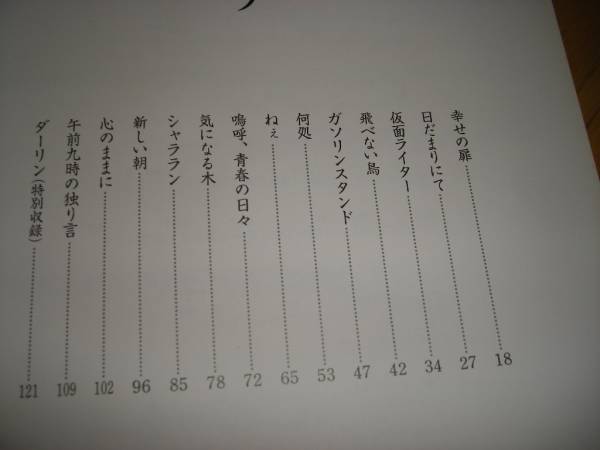 幸せの扉 18
日だまりにて 27
仮面ライター 34
飛べない鳥 42
ガソリンスタンド 47
何処 53
ねぇ 65
嗚呼、青春の日々 72
気になる木 78
シャララン 85
新しい朝 96
心のままに 102
午前九時の独り言 109
ダーリン(特別収録) 121